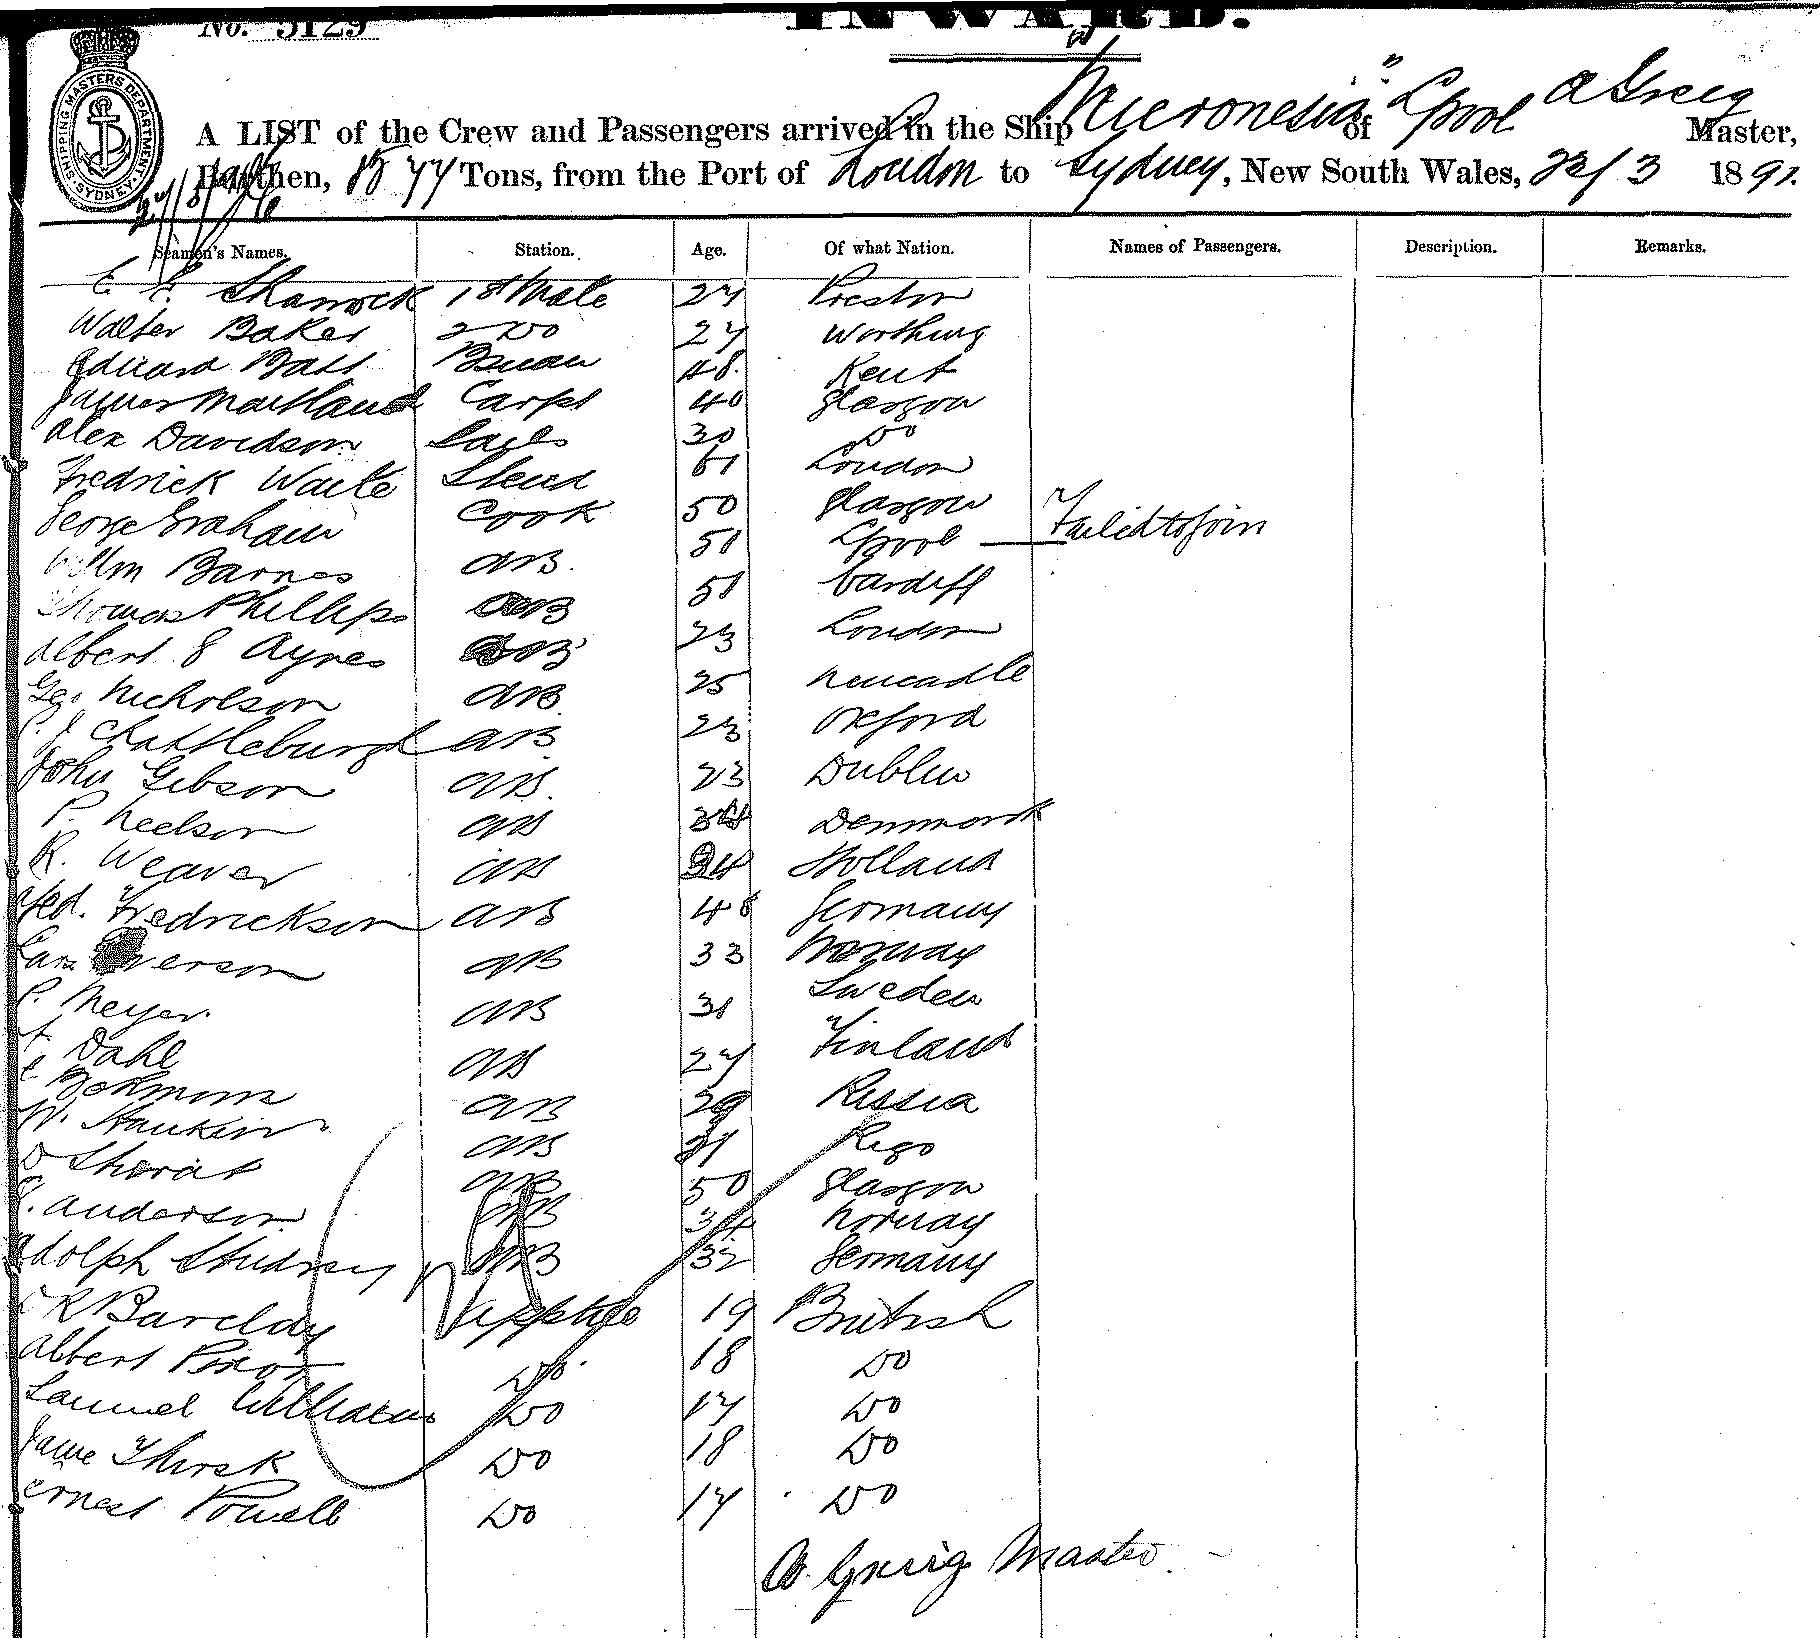 No. 5129
INWARD.
SHIPPING MASTERS DEPARTMENT SYDNEY
A LIST of the Crew and Passengers arrived in the Ship "Micronesia" of Lpool A Greig Master,
Burthen, Tons, from the Port of London to Sydney, New South Wales, 23/3 1891.
Seamen's Names. Station. Age. Of what Nation. Names of Passengers. Description. Remarks.
1st Mate 27 Preston
Walter Baker 2 Do 27 Worthing
Edward Batt 48 Kent
James Maitland Carpt 40 Glasgow
Alex Davidson Sails 30 Do
Fredrick Waite Steud 61 London
George Graham Cook 50 Glasgow
Willm Barnes AB. 51 Lpool — Failed to join
Thomas Phillips AB 51 Cardiff
Albert E Ayres AB 23 London
Geo. Nicholson AB 25 Newcastle
P. J. Chattleburgh AB 23 Oxford
John Gibson AB. 23 Dublin
P. Neelson AB Denmark
K. Weaver AB 24 Holland
Fred. Fredrickson AB 48 Germany
Lars Iverson AB 33 Norway
P. Meyer. AB 31 Sweden
Dahl AB 27 Finland
AB 29 Russia
W. Hankin AB Rigo
D AB 50 Glasgow
Anderson AB 34 Norway
Adolph AB 32 Germany
R Barclay Apptice 19 British
Albert Do 18 Do
Samuel Williams Do 17 Do
Jame Thirsk Do 18 Do
Ernest Powell Do 17 Do
A. Greig Master.